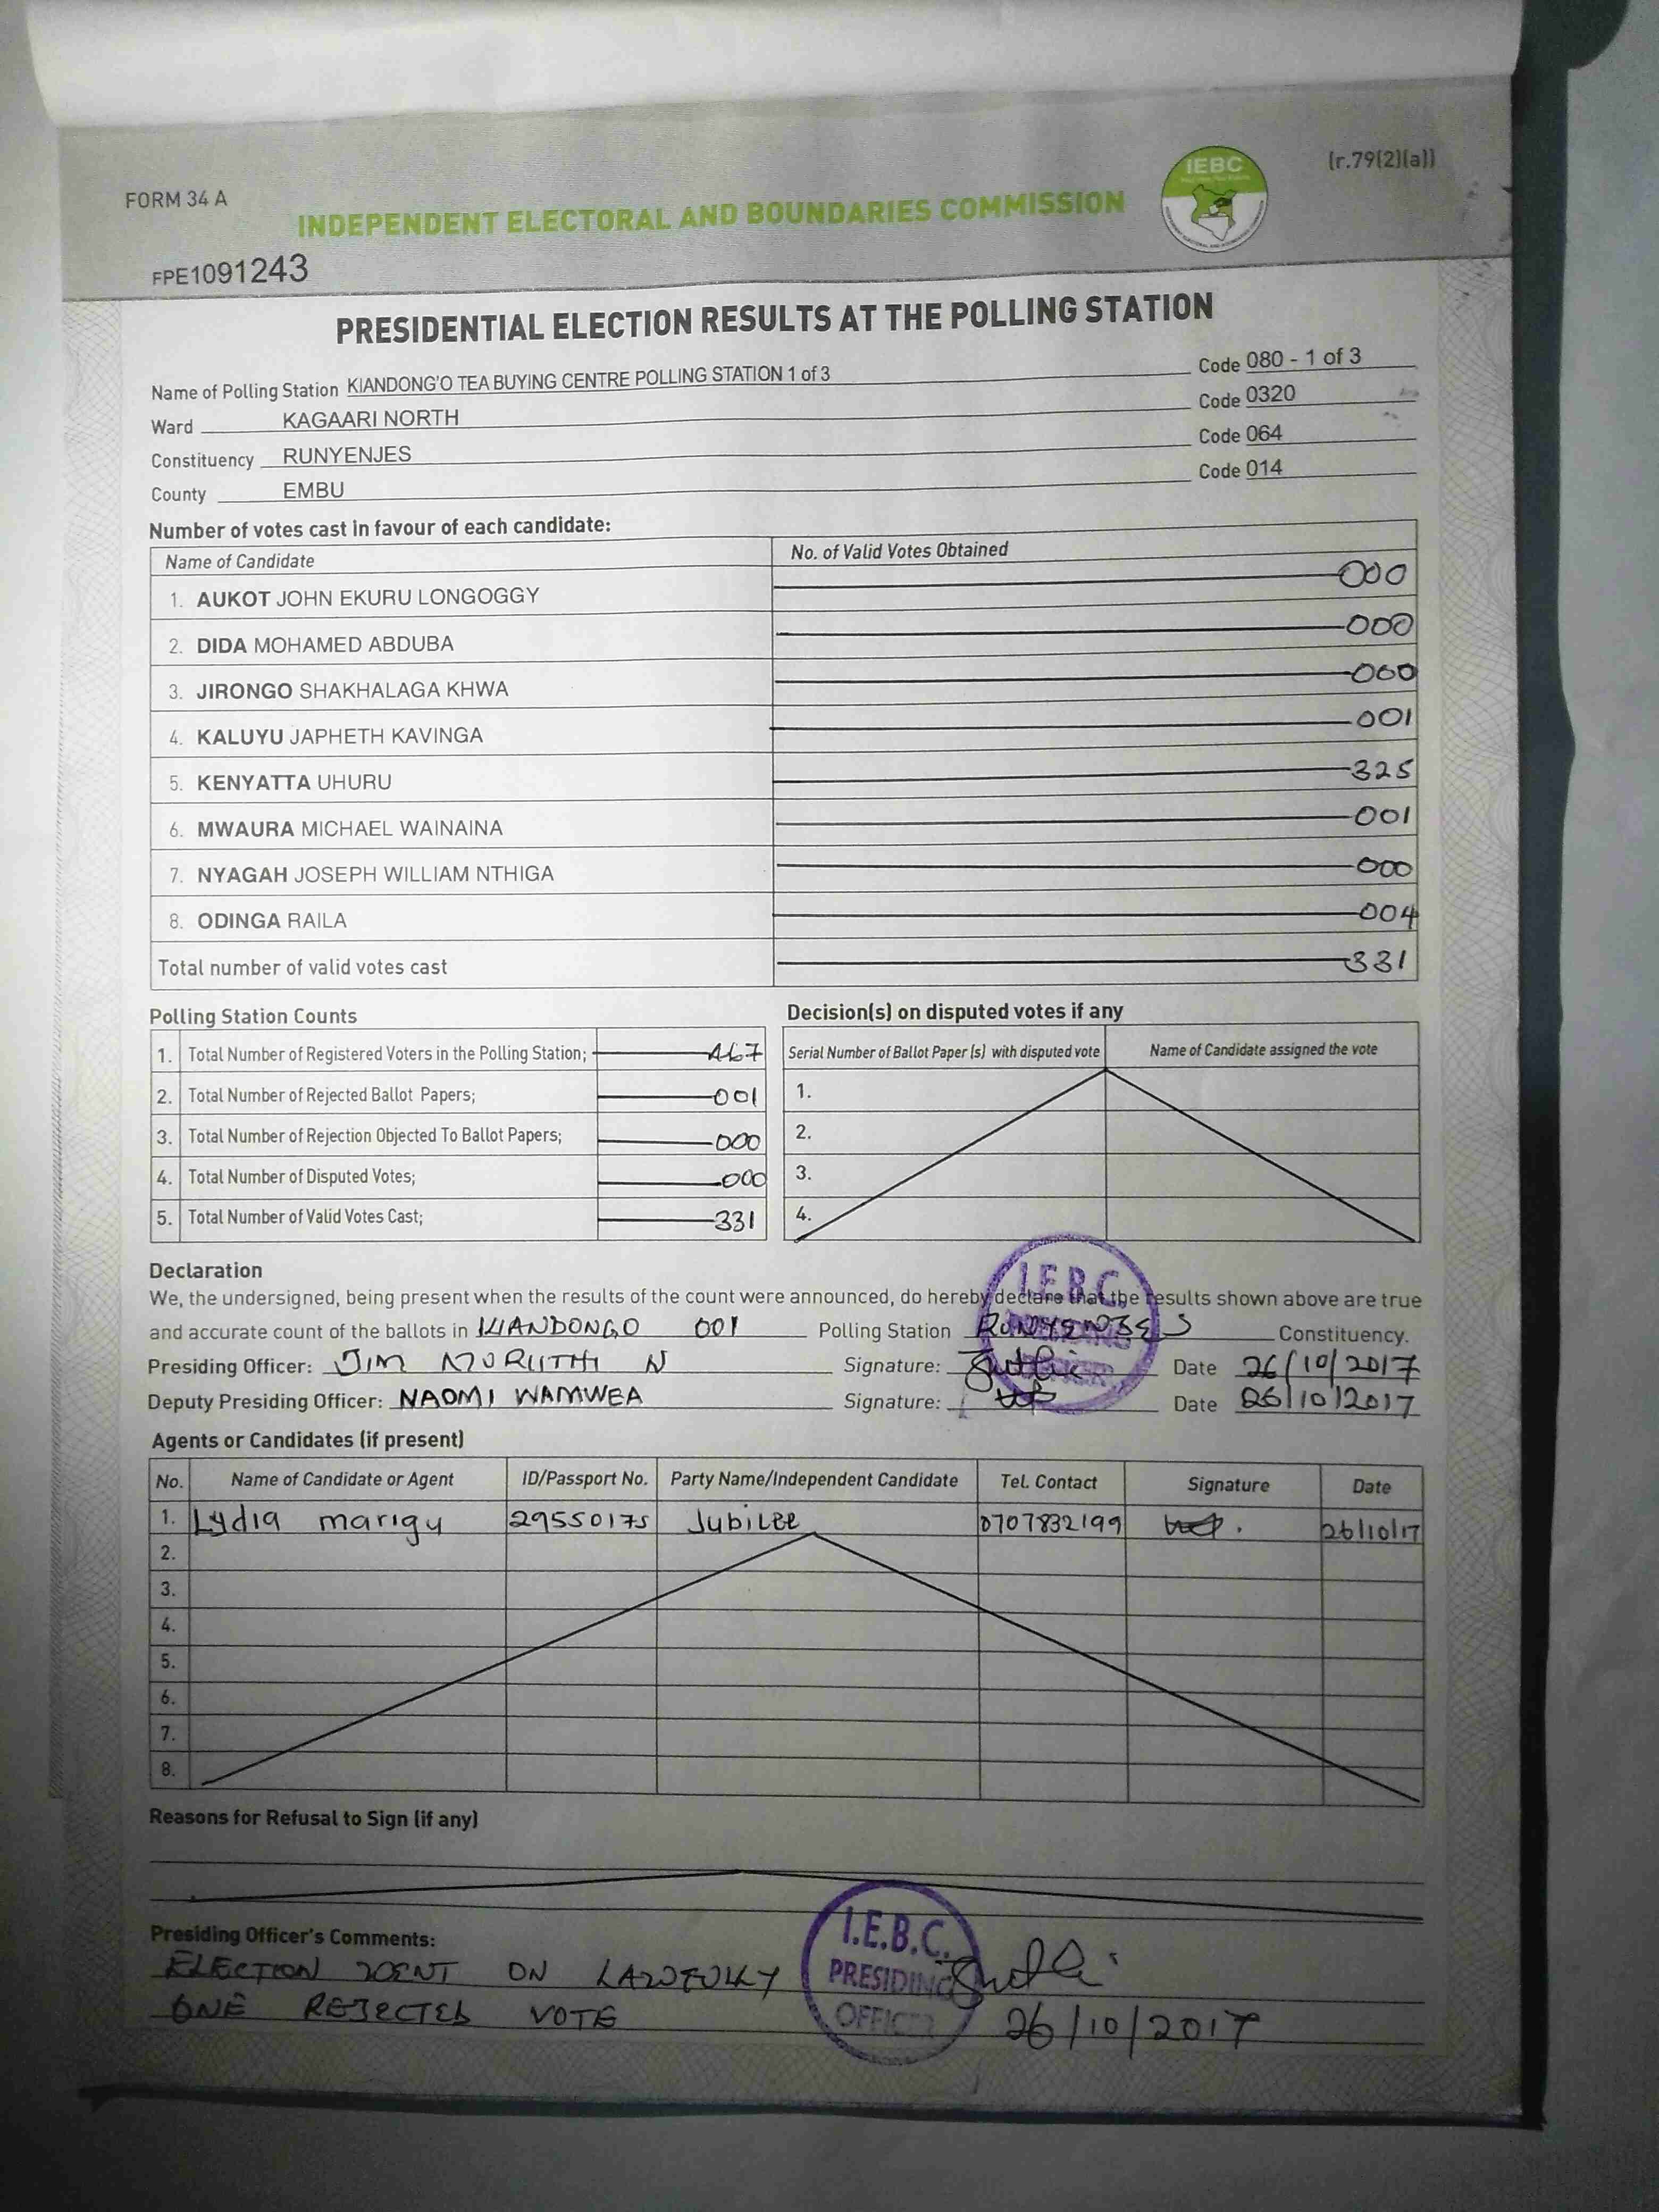 IEBC
(r.79(2)(a))
FORM 34 A
INDEPENDENT ELECTORAL AND BOUNDARIES COMMISSION
FPE1091243
PRESIDENTIAL ELECTION RESULTS AT THE POLLING STATION
Name of Polling Station KIANDONG'O TEA BUYING CENTRE POLLING STATION 1 of 3 Code 080 - 1 of 3
Ward KAGAARI NORTH Code 0320
Constituency RUNYENJES Code 064
County EMBU Code 014
Number of votes cast in favour of each candidate:
Name of Candidate No. of Valid Votes Obtained
1. AUKOT JOHN EKURU LONGOGGY 000
2. DIDA MOHAMED ABDUBA 000
3. JIRONGO SHAKHALAGA KHWA 000
4. KALUYU JAPHETH KAVINGA 001
5. KENYATTA UHURU 325
6. MWAURA MICHAEL WAINAINA 001
7. NYAGAH JOSEPH WILLIAM NTHIGA 000
8. ODINGA RAILA 004
Total number of valid votes cast 331
Polling Station Counts
1. Total Number of Registered Voters in the Polling Station; 467
2. Total Number of Rejected Ballot Papers; 001
3. Total Number of Rejection Objected To Ballot Papers; 000
4. Total Number of Disputed Votes; 000
5. Total Number of Valid Votes Cast; 331
Decision(s) on disputed votes if any
Serial Number of Ballot Paper (s) with disputed vote Name of Candidate assigned the vote
1.
2.
3.
4.
Declaration
We, the undersigned, being present when the results of the count were announced, do hereby declare that the results shown above are true
and accurate count of the ballots in KIANDONGO 001 Polling Station RUNYENJES Constituency.
Presiding Officer: JIM MURIITHI N Signature: Date 26/10/2017
Deputy Presiding Officer: NAOMI WAMWEA Signature: Date 26/10/2017
I.E.B.C.
Agents or Candidates (if present)
No. Name of Candidate or Agent ID/Passport No. Party Name/Independent Candidate Tel. Contact Signature Date
1. Lydia marigu 29550175 Jubilee 0707832199 26/10/17
2.
3.
4.
5.
6.
7.
8.
Reasons for Refusal to Sign (if any)
Presiding Officer's Comments:
ELECTION WENT ON LAWFULLY
ONE REJECTED VOTE
I.E.B.C.
PRESIDING
OFFICER
26/10/2017